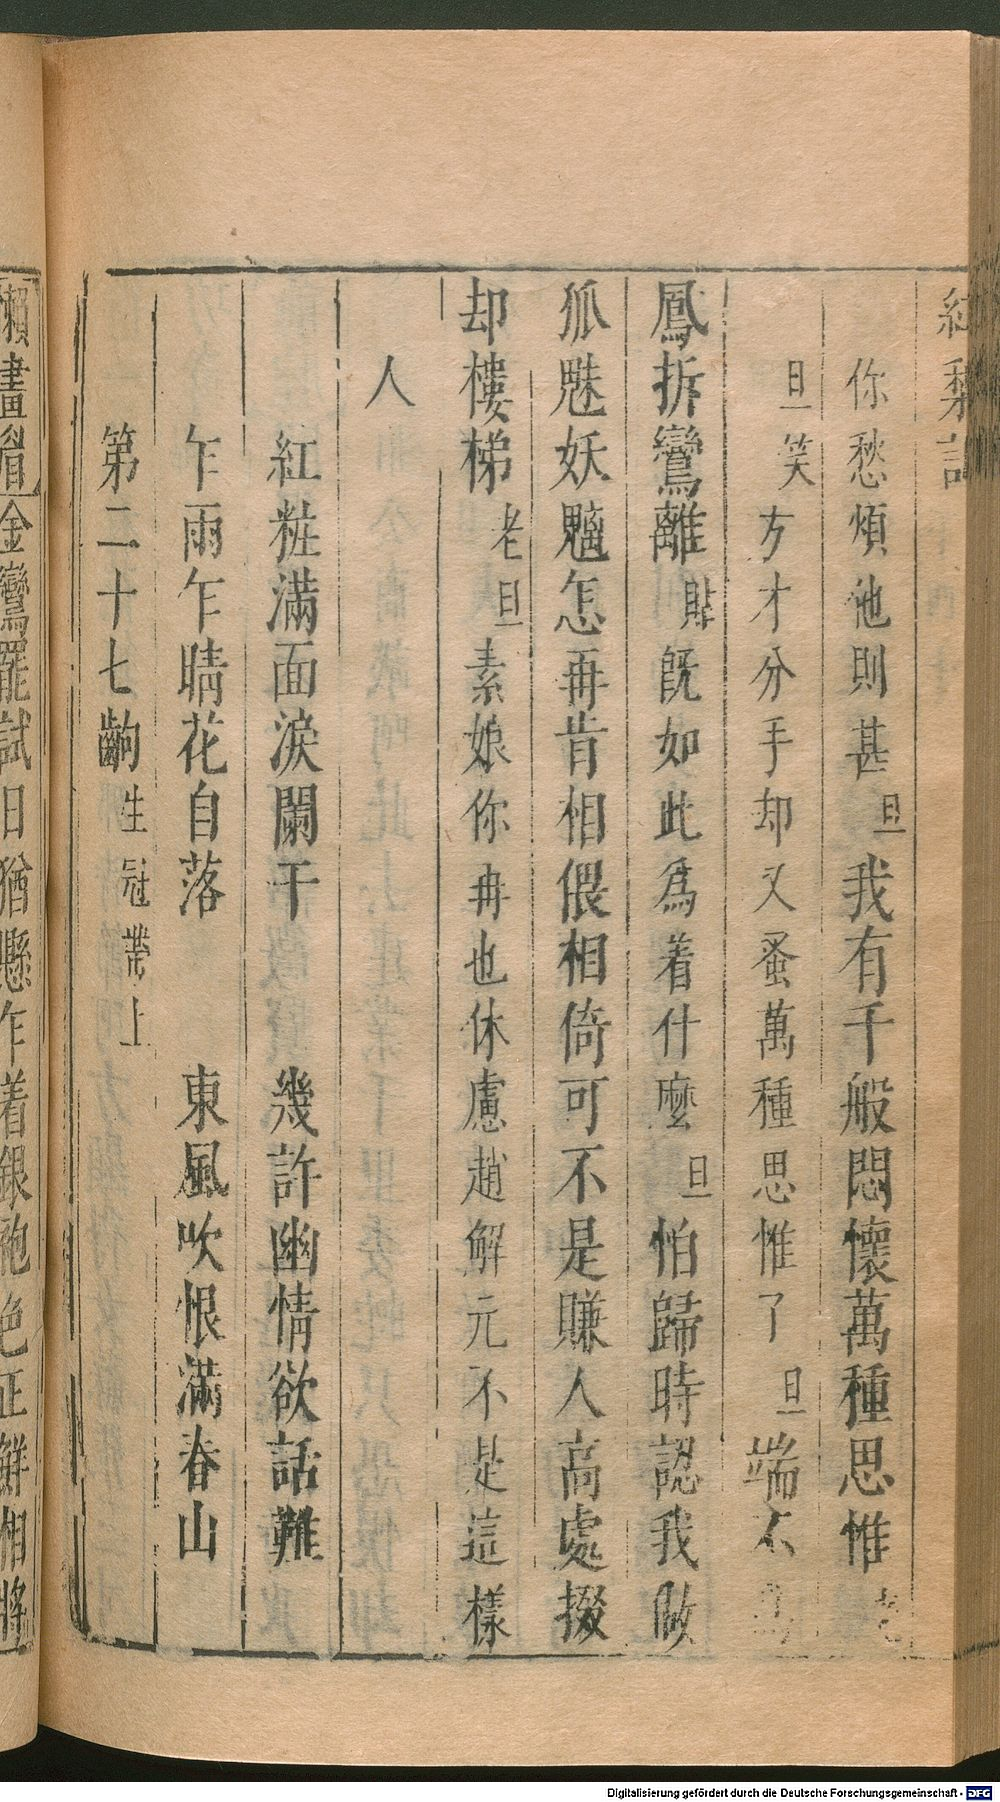 紅梨記
你愁煩他則甚旦我有千般悶懷萬種思惟老
旦笑方才分手却又蚤萬種思惟了旦端不爲
鳳拆鸞離貼旣如此爲着什麼旦怕歸時認我做
狐魅妖魑怎再肯相偎相倚可不是賺人高處掇
却樓梯老旦素娘你再也休慮趙解元不是這樣
人
紅粧滿面淚闌干　幾許幽情欲話難
乍雨乍晴花自落　東風吹恨滿春山
第二十七齣生冠帶上
懶畫眉金鑾罷試日猶懸乍着銀袍色正鮮相將
Digitalisierung gefördert durch die Deutsche Forschungsgemeinschaft - DFG